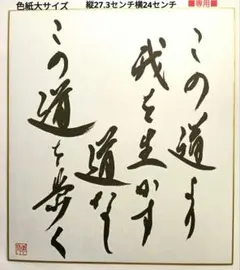 色紙大サイズ 縦27.3センチ横24センチ ■専用■
この道より
我を生かす
道なし
この道を歩く